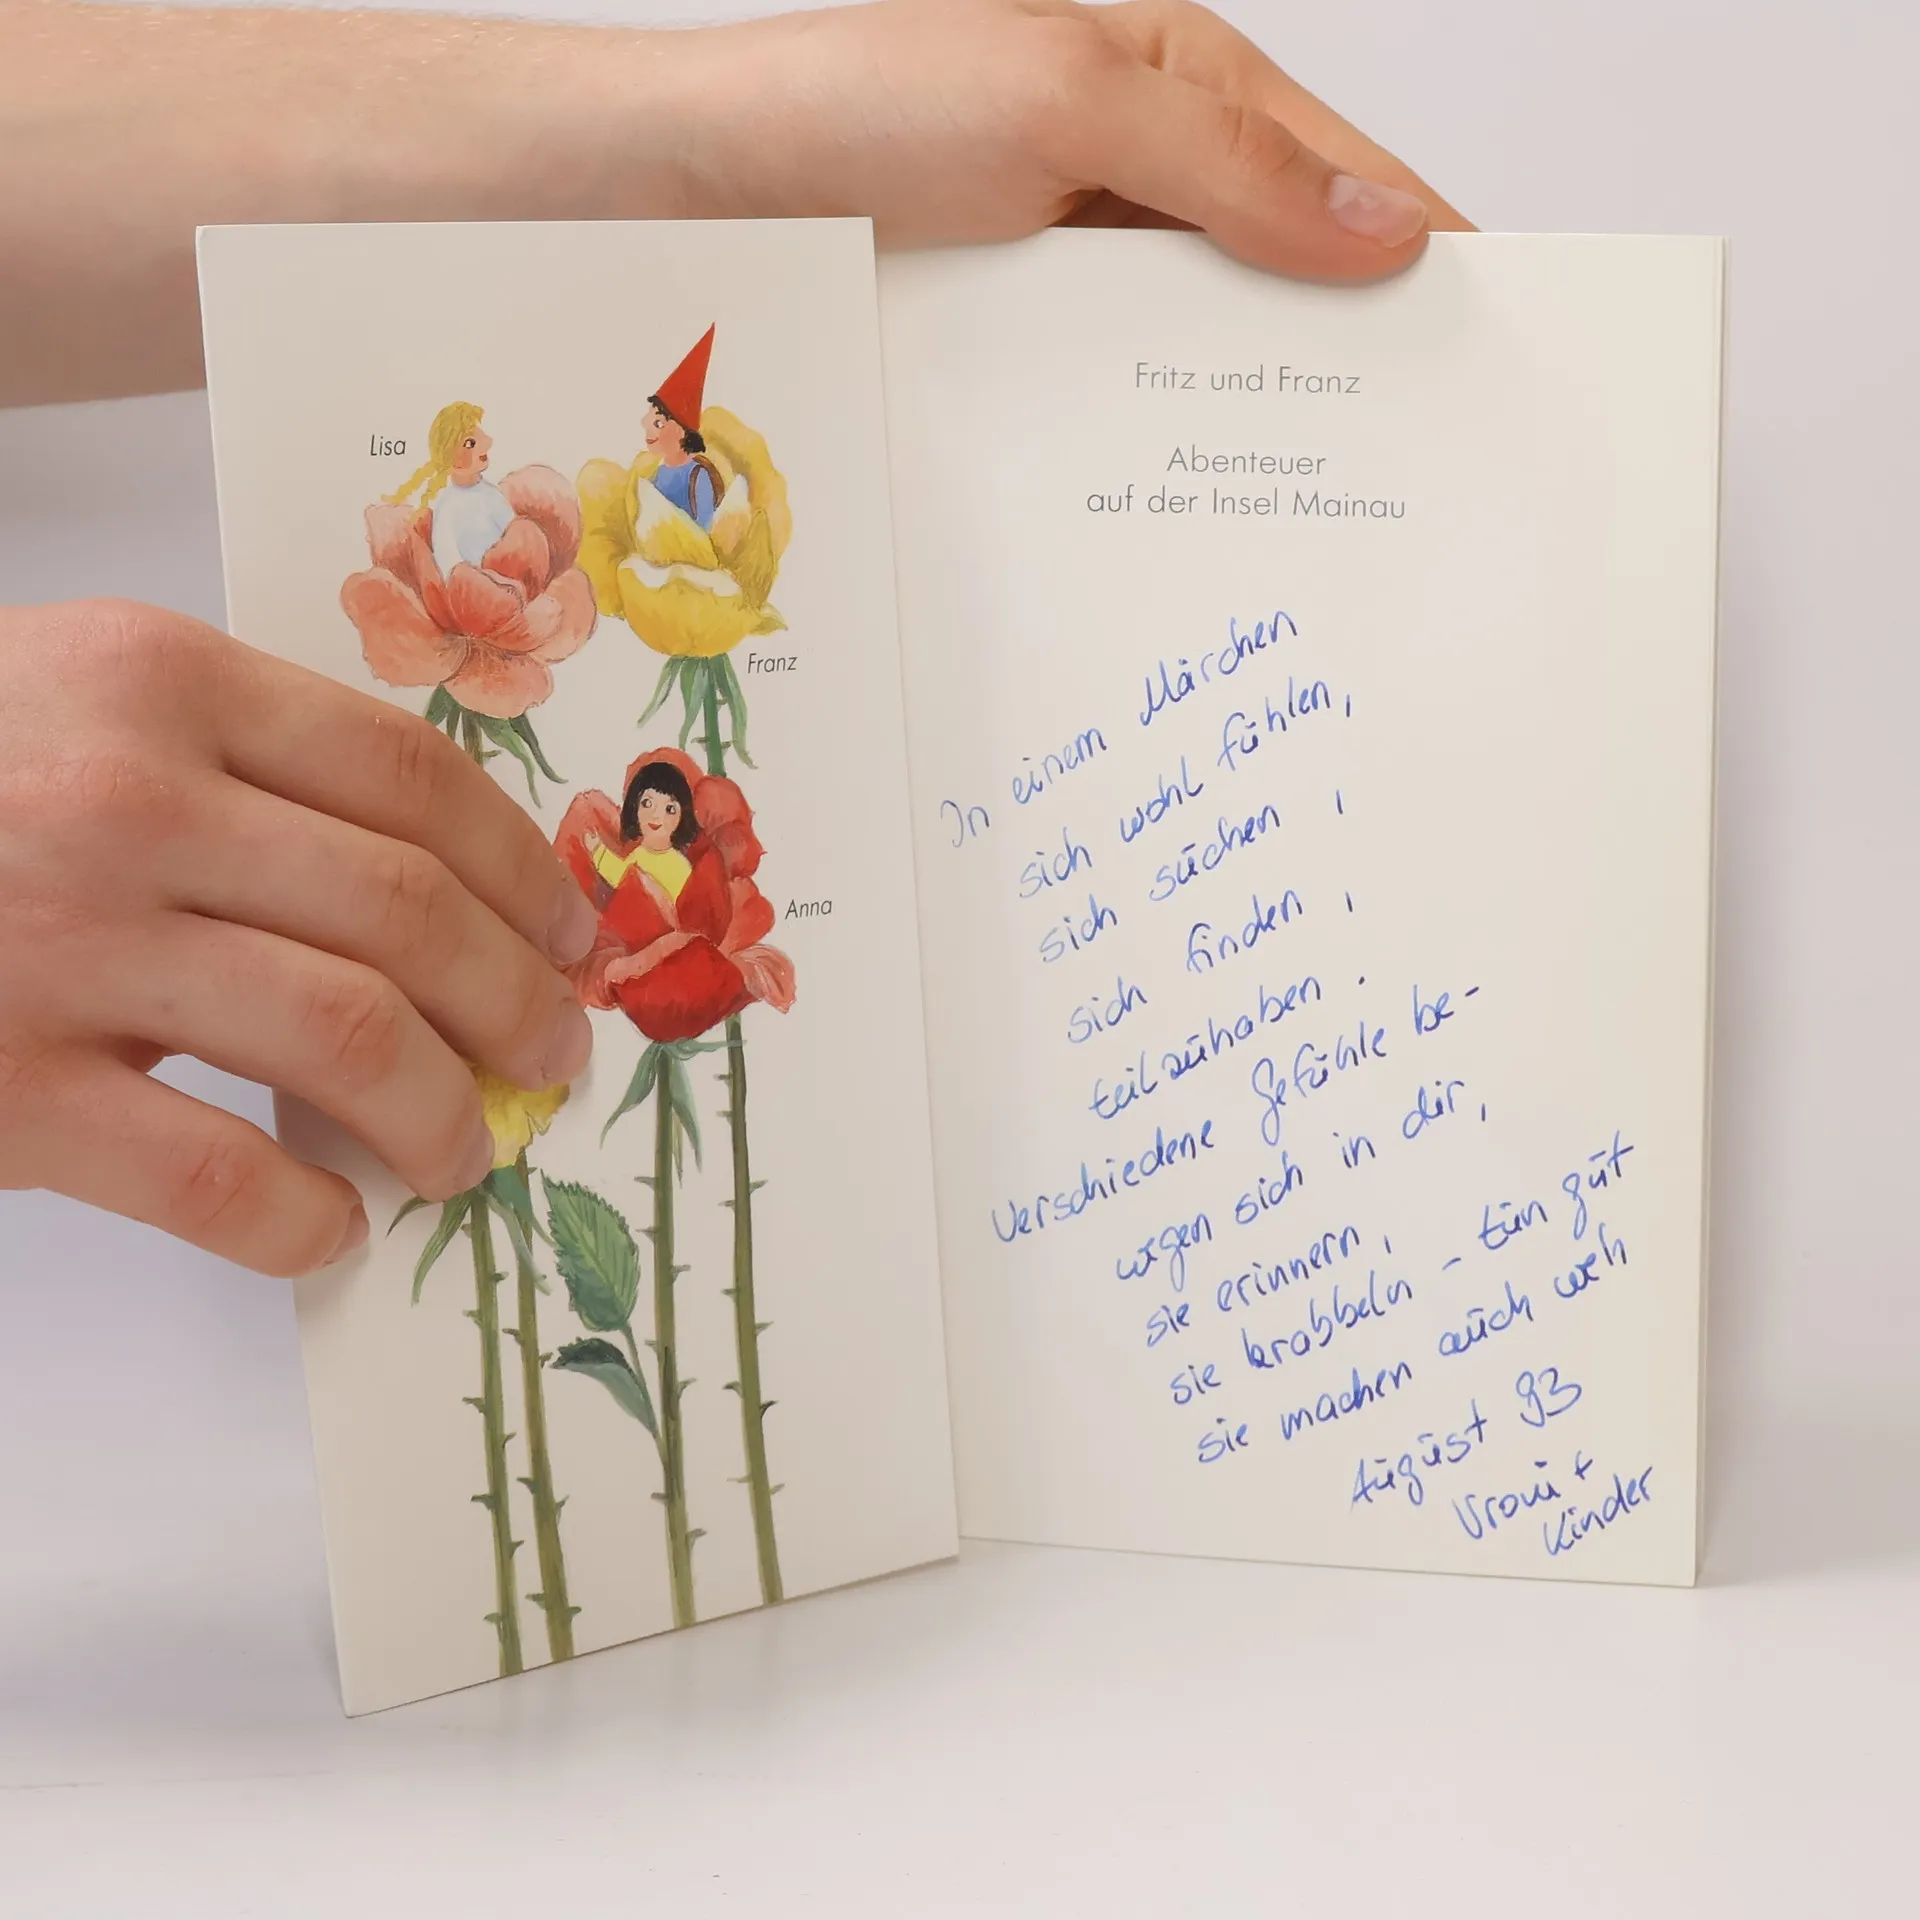 Lisa
Franz
Anna
Fritz und Franz
Abenteuer
auf der Insel Mainau
In einem Märchen
sich wohl fühlen,
sich suchen,
sich finden,
teilzuhaben.
Verschiedene Gefühle be-
wegen sich in dir,
sie erinnern,
sie krabbeln - tun gut
sie machen auch weh
August 93
Vroni +
Kinder